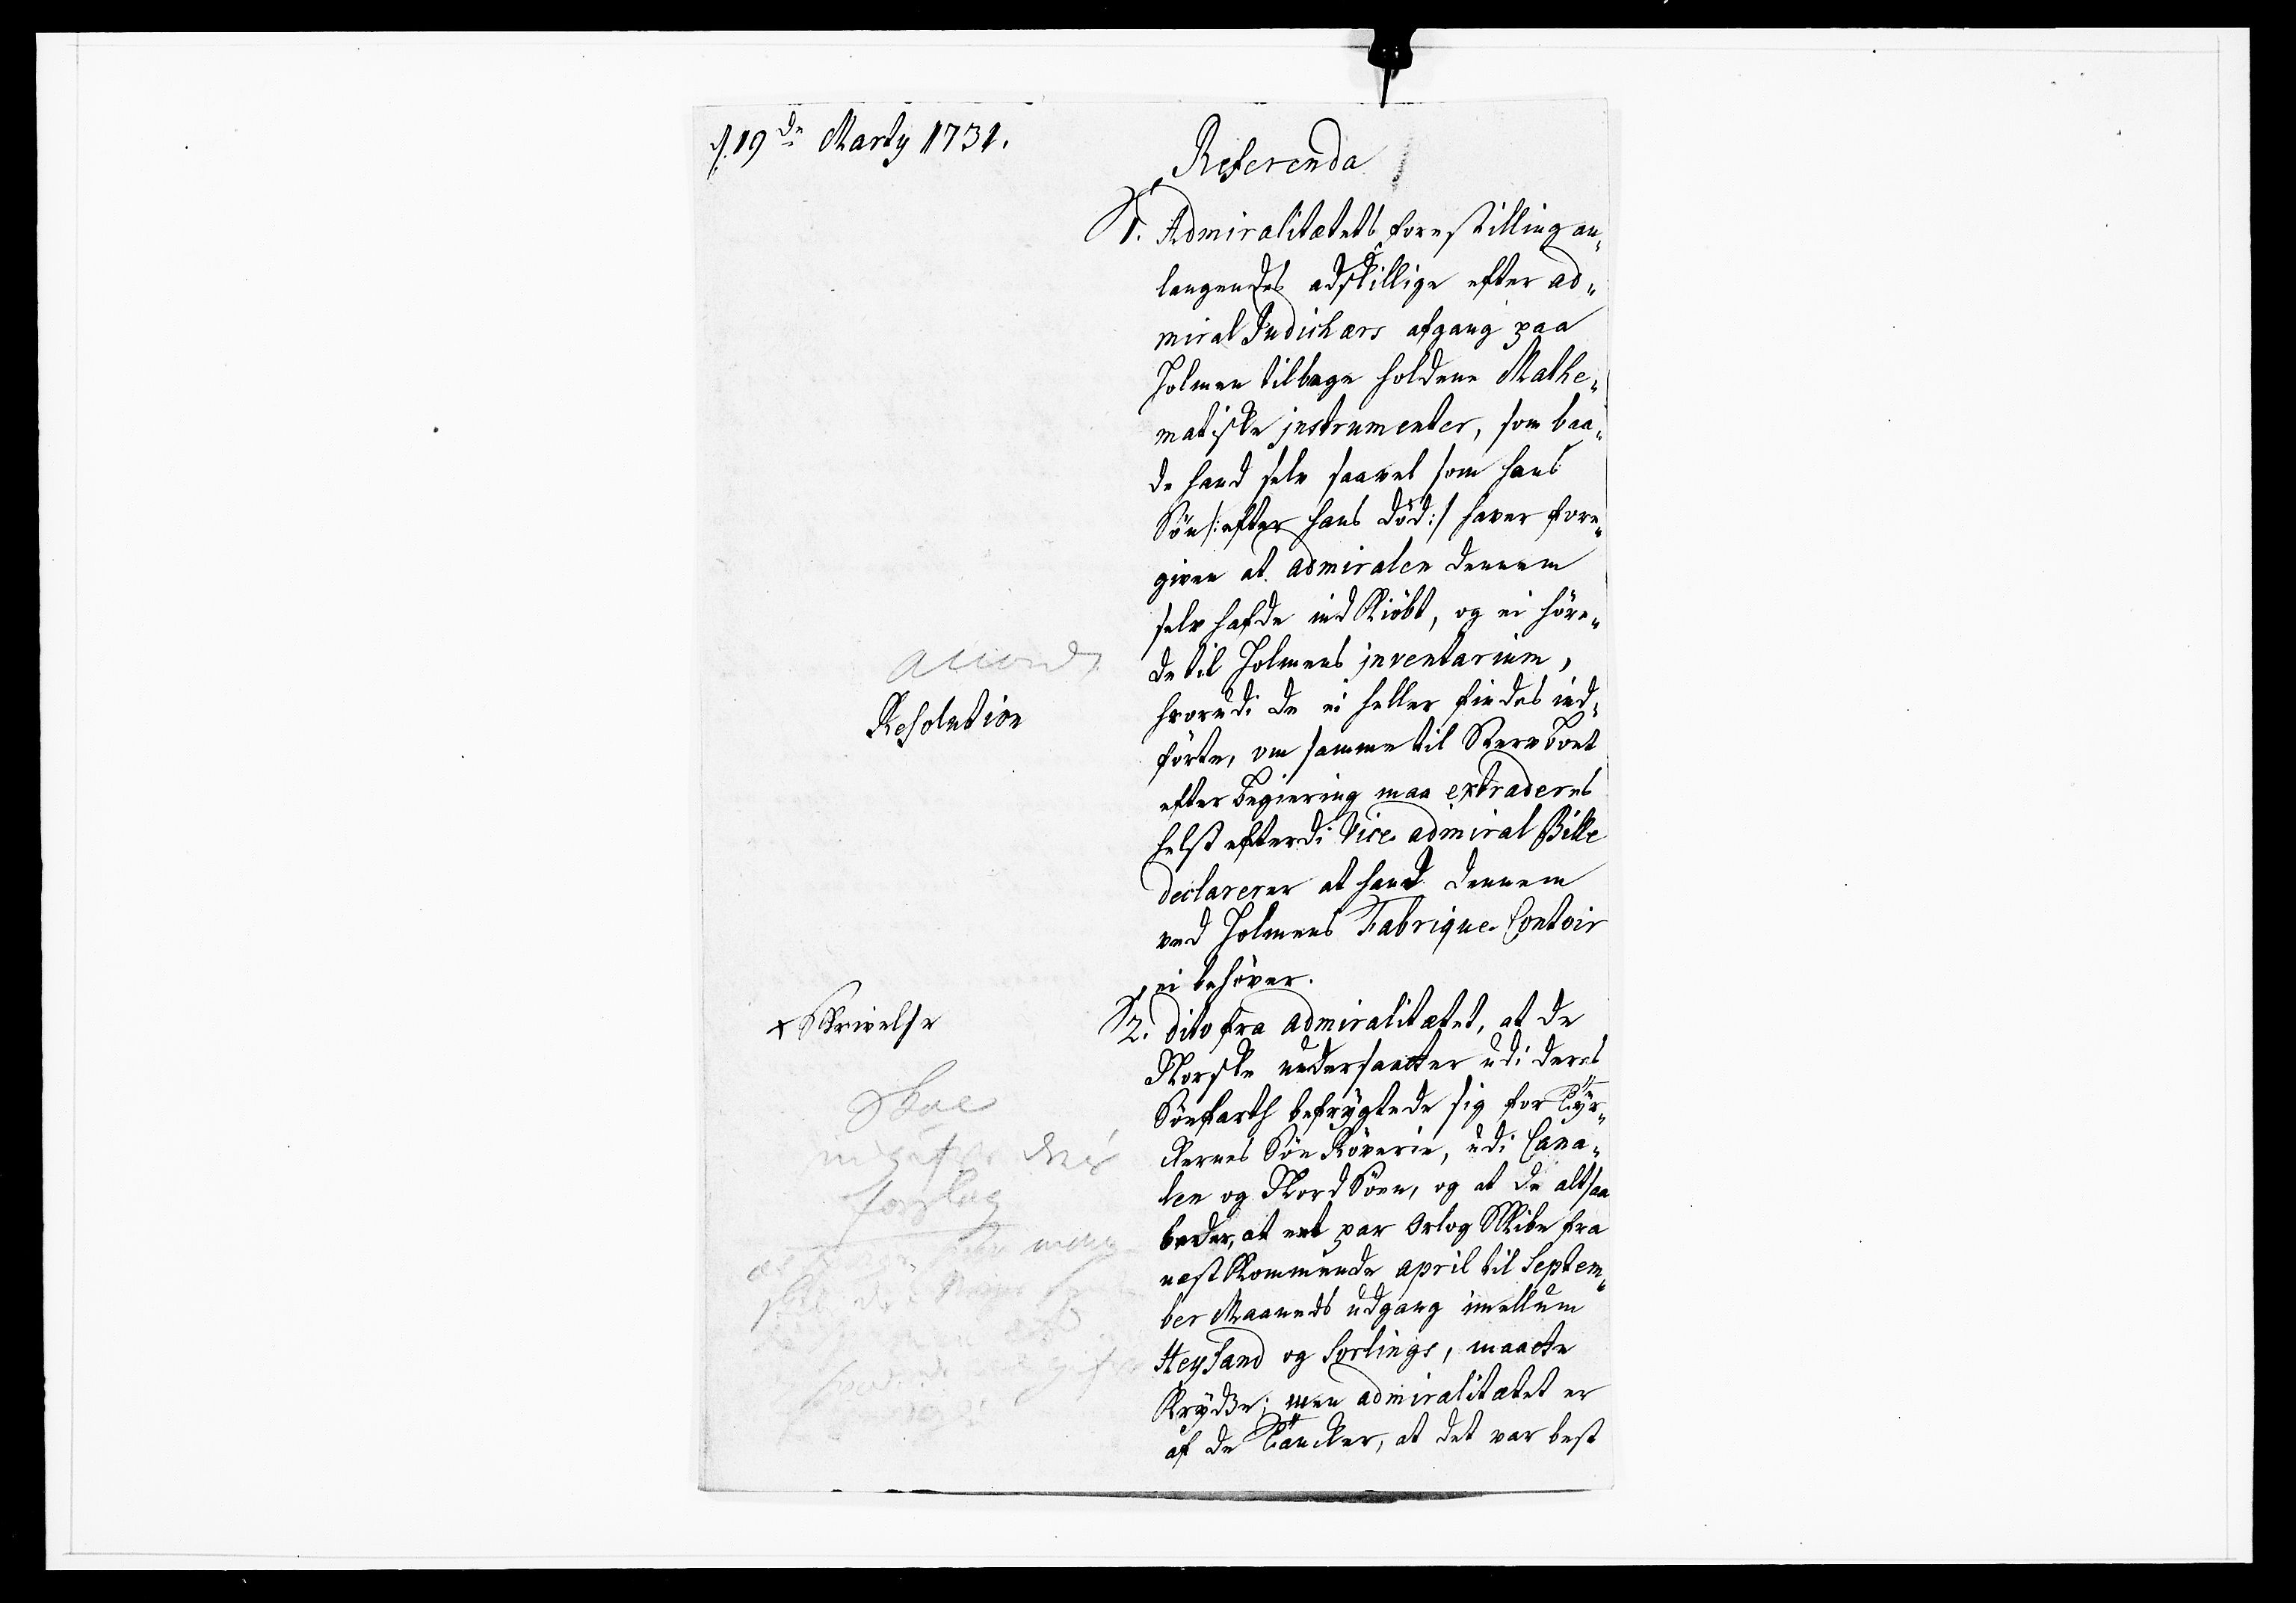 d. 19de Marty 1731.
Referenda
1. Admiralitætets forestilling an-
langendes adskillige efter ad-
miral Judichærs afgang paa
Holmen tilbage holdene Mathe-
matiske instrumenter, som baa-
de hand selv saavel som hans
Sön /: efter hans död :/ haver fore-
given at admiralen dennem
selv hafde ind kiöbt, og ei höre-
de til Holmens inventarium,
hvorudi de ei heller findes ind-
förte, om samme til Sterv Boet
efter Begiering maa extraderes
helst efterdi Vice admiral Bille
declarerer at hand dennem
ved Holmens Fabrique Contoir
ei behöver.
accord
Resolution
2. dito fra admiralitætet, at de
Norske undersaatter udi deres
Söefarth befrygtede sig for Tyr-
kernes Söe Röverie, udi Cana-
len og Nord Söen, og at de altsaa
beder, at et par Orlog Skibe fra
nest kommende april til Septem-
ber Maaneds udgang imellum
Heysand og Sorlings, maatte
krydse; men admiralitætet er
af de Tancker, at det var best
x Skrivelse
Skal
forslag